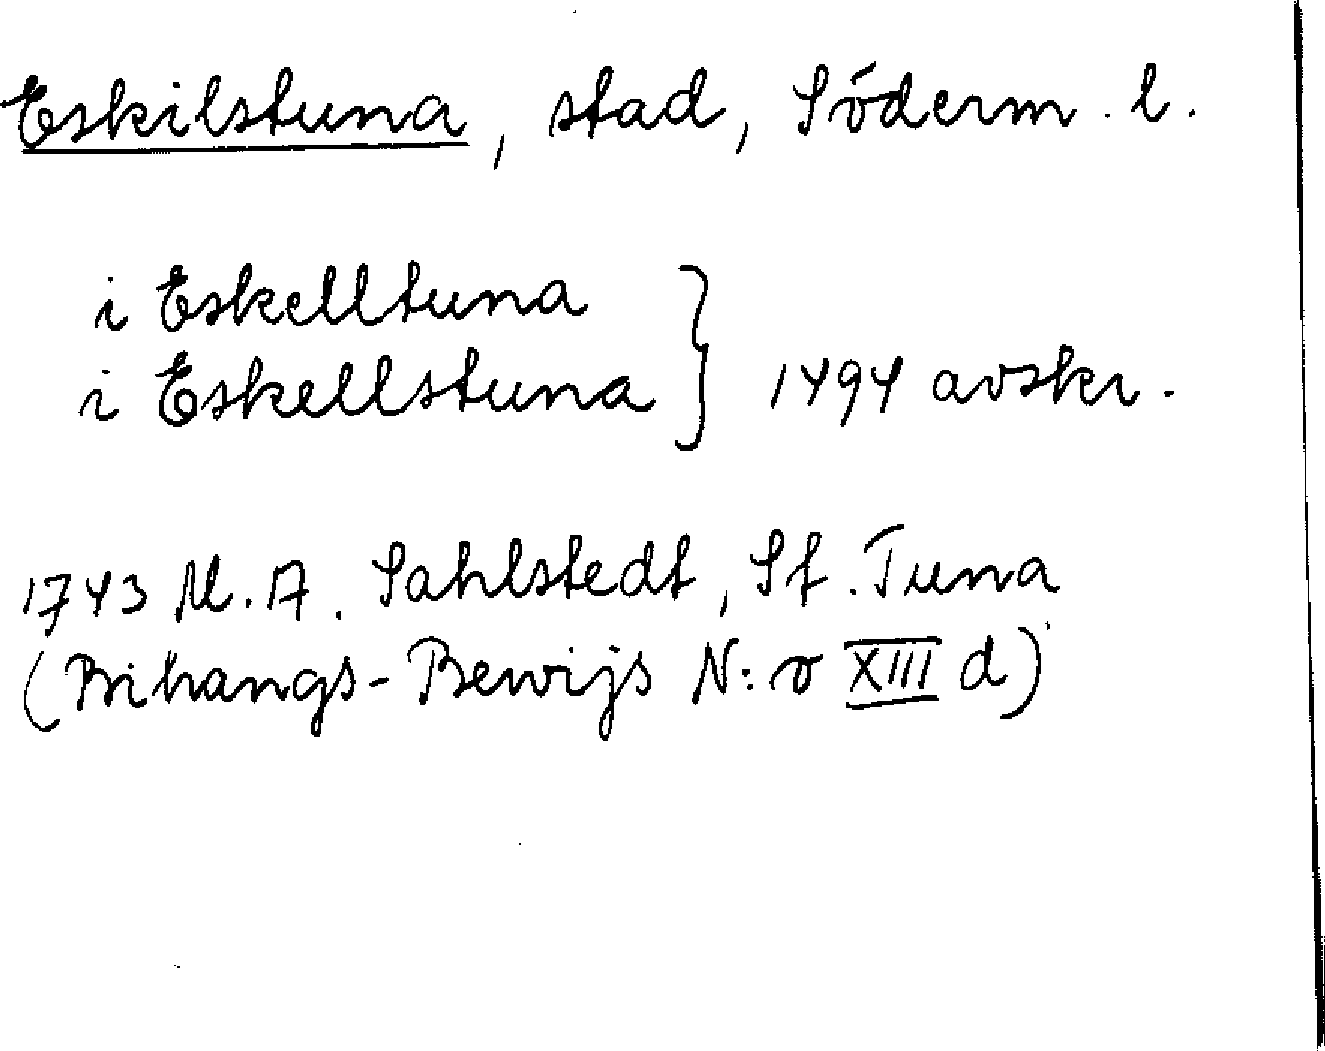 Eskilstuna, stad, Söderm. l.
i Eskelltuna
i Eskellstuna } 1494 avskr.
1743 M. A. Sahlstedt, St. Tuna
(Bihangs-Bewijs N:o XIII d)